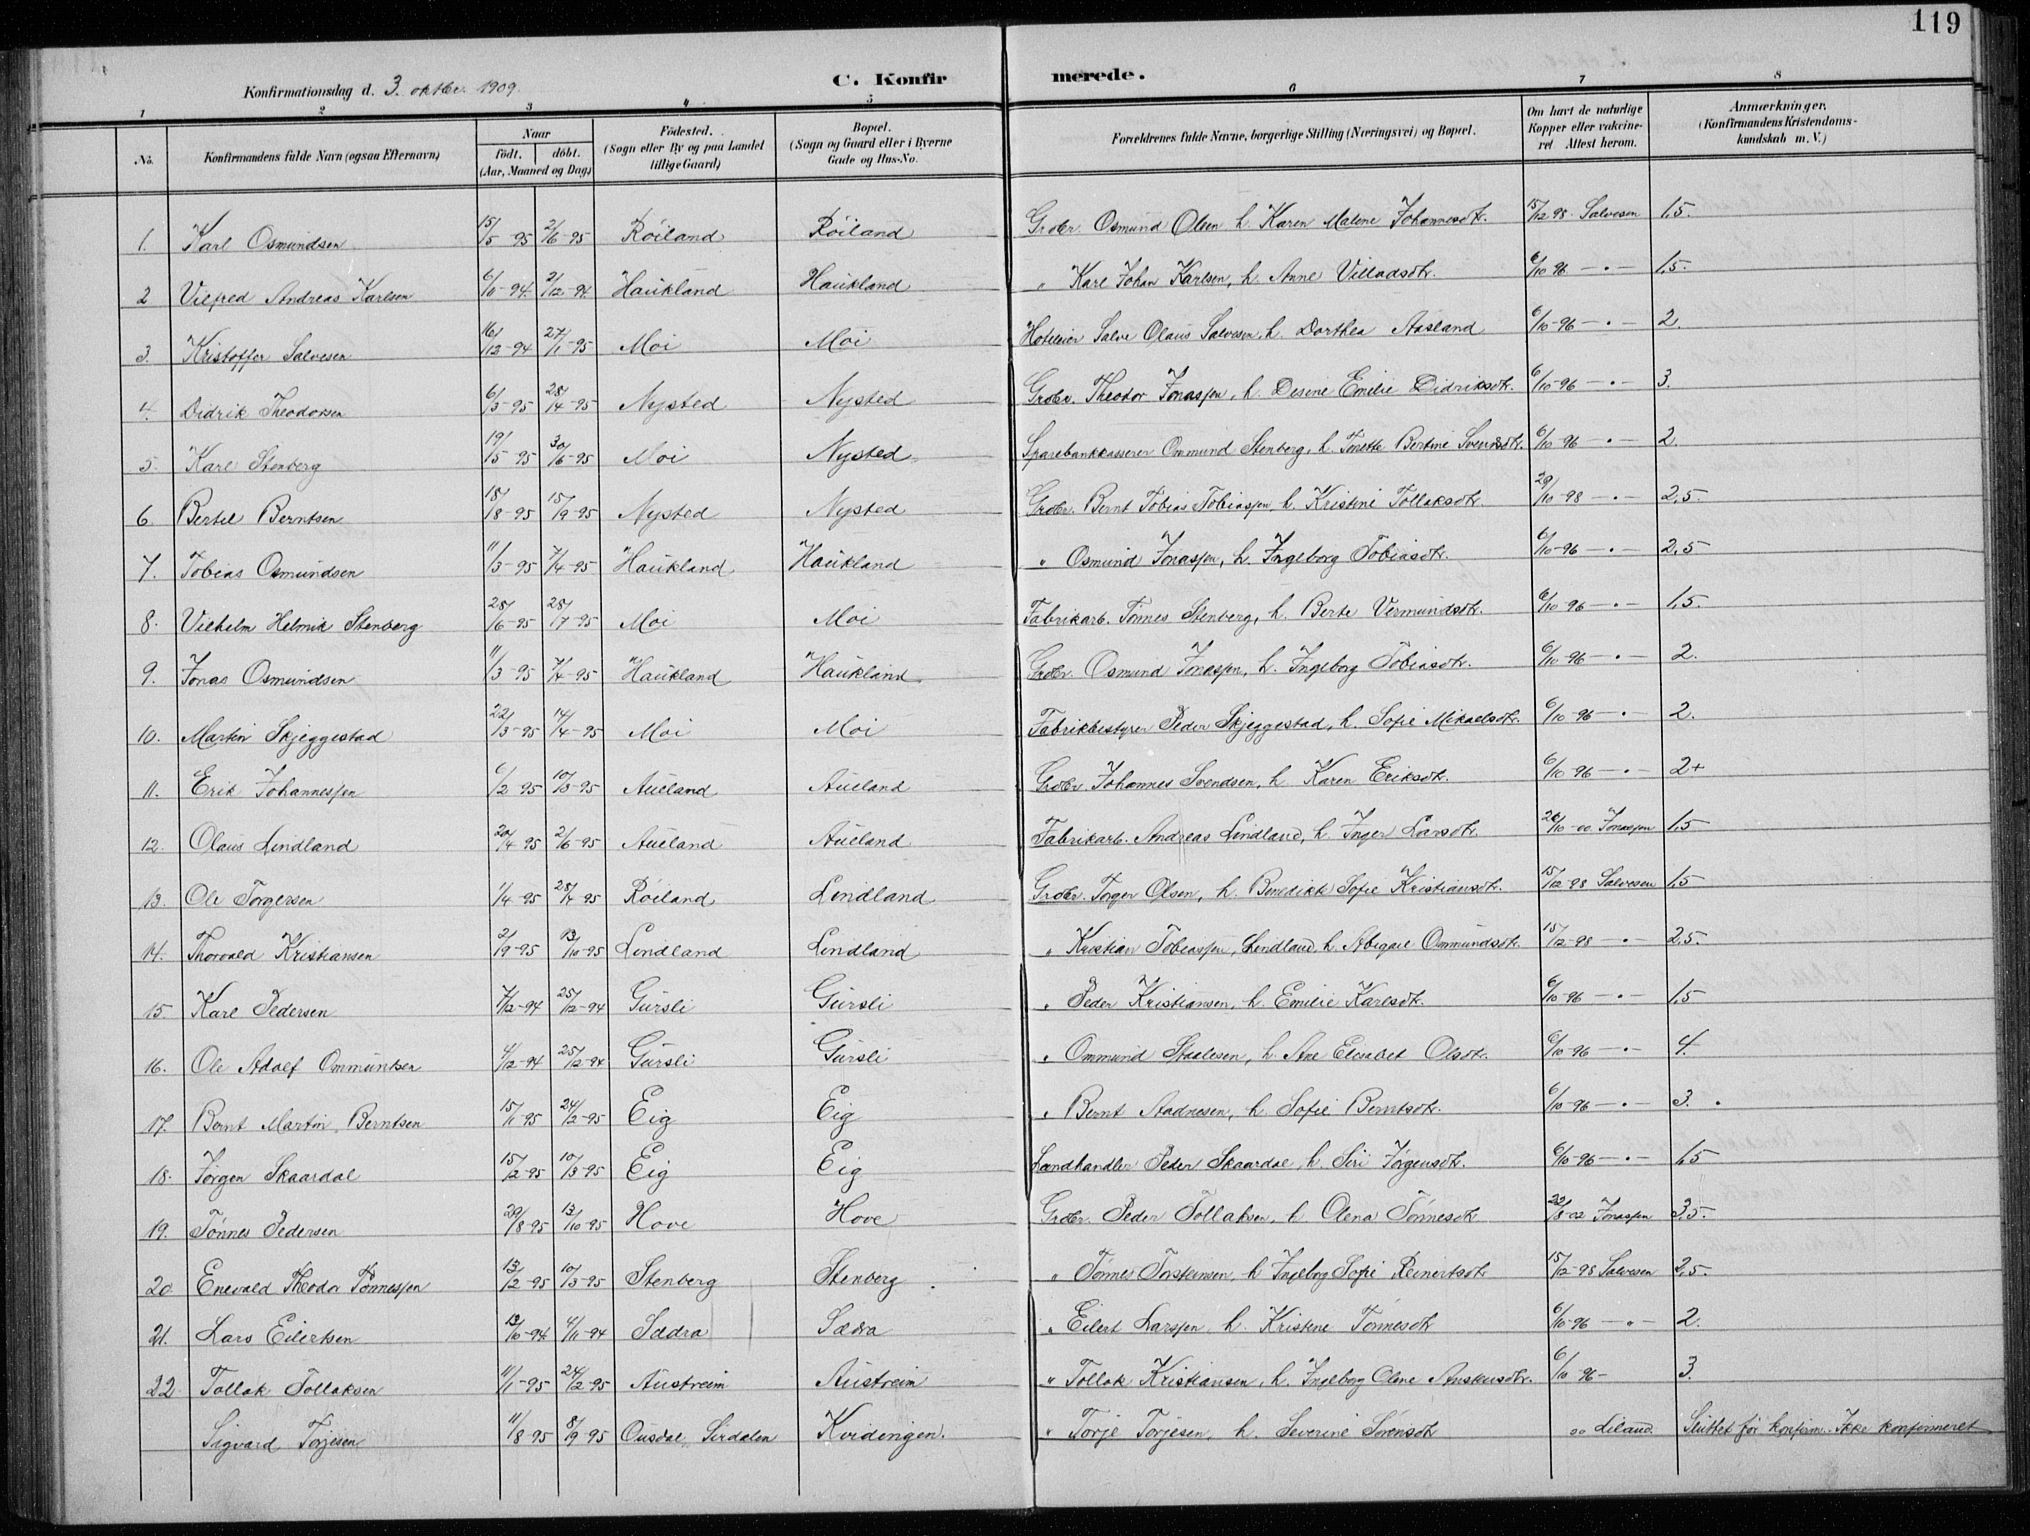 119
Konfirmationsdag d. 3. oktbr. 1909.
C. Konfirmerede.
1 2 3 4 5 6 7 8
No. Konfirmandens fulde Navn (ogsaa Efternavn) Naar født. døbt. (Aar, Maaned og Dag) Fødested. (Sogn eller By og paa Landet tillige Gaard) Bopæl. (Sogn og Gaard eller i Byerne Gade og Hus-No. Forældrenes fulde Navne, borgerlige Stilling (Næringsvei) og Bopæl. Om havt de naturlige Kopper eller vakcineret Attest herom. Anmærkninger. (Konfirmandens Kristendomskundskab m. V.)
1. Karl Osmundsen 15/5-95 2/6-95 Röiland Röiland Grdbr. Osmund Olsen h. Karen Malene Johannesdtr. 15/12 98 Salvesen 1,5.
2 Vilfred Andreas Karlsen 6/10-94 2/12-94 Haukland Haukland " Karl Johan Karlsen, h. Anne Villadsdtr. 6/10 96 — " — 1,5.
3. Kristoffer Salvesen 16/12-94 27/1-95 Moi Moi Hoteleier Salve Olaus Salvesen, h. Dorthea Aasland 6/10-96 — " — 2.
4. Didrik Theodorsen 6/3-95 28/4-95 Nysted Nysted Grdbr. Theodor Jonassen, h. Desine Emilie Didriksdtr. 6/10-96 — " — 3.
5. Karl Stenberg 19/5-95 30/6-95 Moi Nysted Sparebankkasserer Ommund Stenberg, h. Tonette Bertine Svendsdtr. 6/10-96 — " — 2.
6. Bertel Berntsen 18/8-95 15/9-95 Nysted Nysted Grdbr. Bernt Tobias Tobiassen, h. Kristine Tollaksdtr. 29/10-98 — " — 2,5.
7. Tobias Osmundsen 11/3-95 7/4-95 Haukland Haukland " Osmund Jonassen, h. Ingeborg Tobiasdtr. 6/10-96 — " — 2,5
8. Vilhelm Helmik Stenberg 28/6-95 28/7-95 Moi Moi Fabrikarb. Tönnes Stenberg, h. Berte Vermundsdtr. 6/10-96 — " — 1,5.
9. Jonas Osmundsen 11/3-95 7/4-95 Haukland Haukland Grdbr. Osmund Jonassen, h. Ingeborg Tobiasdtr. 6/10-96 — " — 2.
10. Martin Skjeggestad 22/3-95 14/4-95 Moi Moi Fabrikbestyrer Peder Skjeggestad, h. Sofie Mikaelsdtr. 6/10-96 — " — 2.
11. Erik Johannessen 6/2 95 10/3-95 Aueland Aueland Grdbr. Johannes Svendsen, h. Karen Eriksdtr. 6/10-96 — " — 2+
12. Olaus Lindland 20/4 95 2/6-95 Aueland Aueland Fabrikarb. Andreas Lindland, h. Inger Larsdtr. 26/10-00. Jonassen 1,5
13. Ole Torgersen 1/4-95 28/4-95 Röiland Lindland Grdbr. Torger Olsen, h. Benedikte Sofie Kristiansdtr. 15/12-98 Salvesen 1,5
14. Thorvald Kristiansen 2/9-95 13/10-95 Lindland Lindland " Kristian Tobiassen, Lindland, h. Abigael Ommundsdtr. 15/12-98 — " — 2,5.
15. Karl Pedersen 7/12-94 25/12-94 Gursli Gursli " Peder Kristiansen, h. Emilie Karlsdtr. 6/10-96 — " — 1,5
16. Ole Adolf Ommuntsen 4/12-94 25/12-94 Gursli Gursli " Ommund Staalesen, h. Ane Elisabet Olsdtr. 6/10-96 — " — 4.
17. Bernt Martin Berntsen 15/1-95 24/2-95 Eig Eig " Bernt Aadnesen, h. Sofie Berntsdtr. 6/10-96 — " — 3.
18. Jörgen Skaardal 15/2-95 10/3-95 Eig Eig Landhandler Peder Skaardal, h. Siri Jörgensdtr. 6/10-96 — " — 1,5
19. Tönnes Pedersen 29/8-95 13/10-95 Hove Hove Grdbr. Peder Tollaksen, h. Olena Tönnesdtr. 22/8-02 Jonassen 3,5.
20 Enevald Theodor Tönnessen 13/2-95 10/3-95 Stenberg Stenberg " Tönnes Torstensen, h. Ingeborg Sofie Reinertsdtr. 15/12-98 Salvesen 2,5.
21. Lars Eilertsen 13/10-94 4/11-94 Sædra Sædra " Eilert Larssen, h. Kristine Tönnesdtr 6/10-96 — " — 2.
22 Tollak Tollaksen 11/1-95 24/2-95 Austreim Austreim " Tollak Kristiansen, h. Ingeborg Olene Austensdtr. 6/10-96- 3.
Sigvard Torjesen 11/8-95 8/9-95 Ousdal, Sirdalen Kvidingen. " Torje Torjesen, h. Severine Sörensdtr 00 Liland. Sluttet før konfirm. Ikke konfirmeret